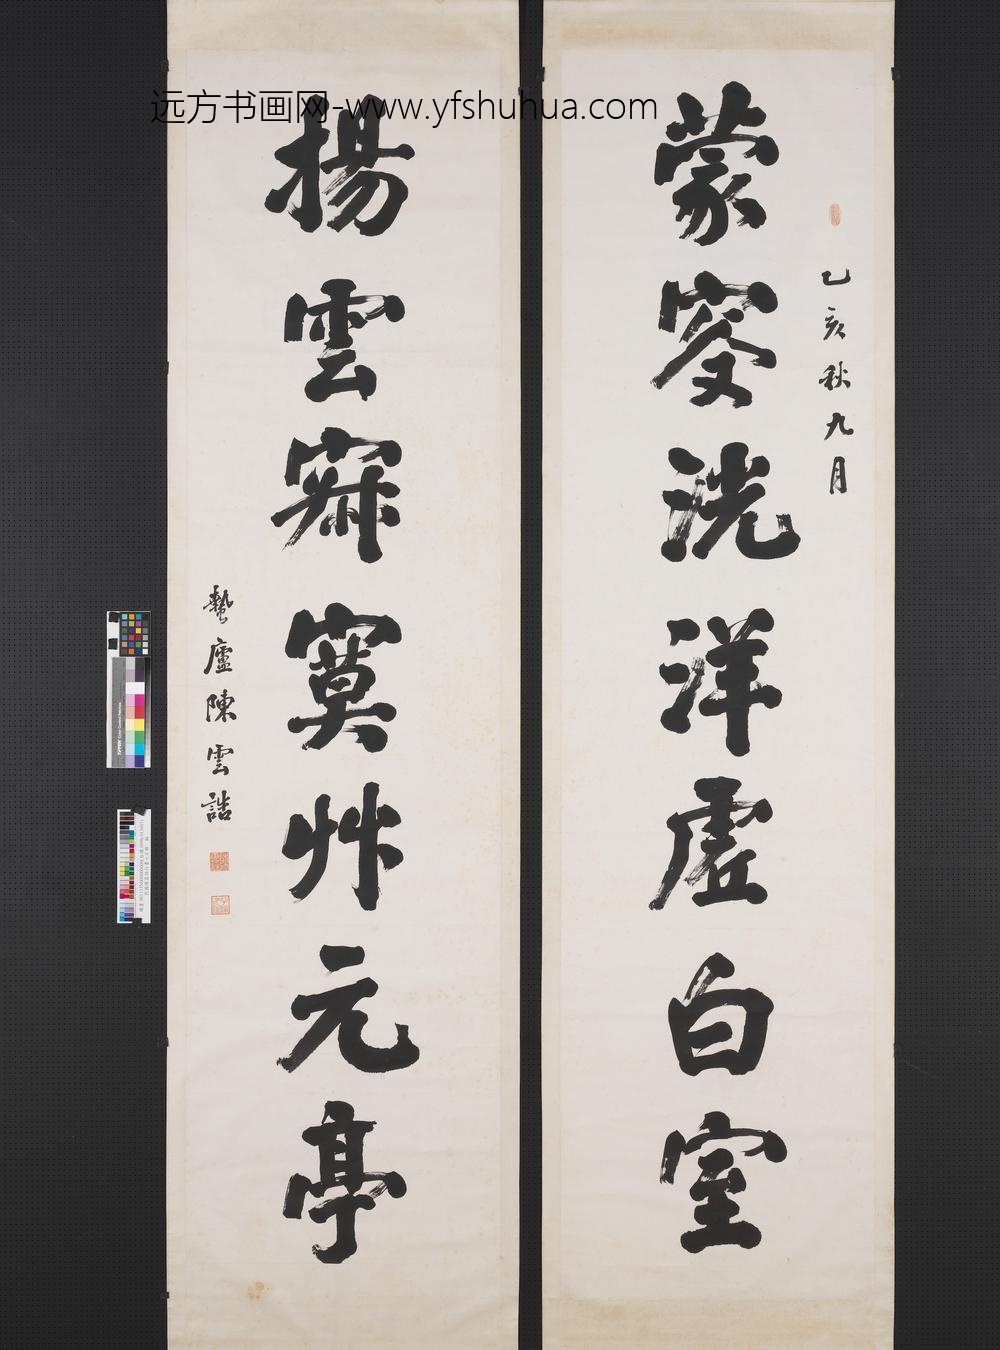 远方书画网-www.yfshuhua.com
乙亥秋九月
蒙叜洸洋虛白室
揚雲寂寞艸元亭
蟄廬陳雲誥